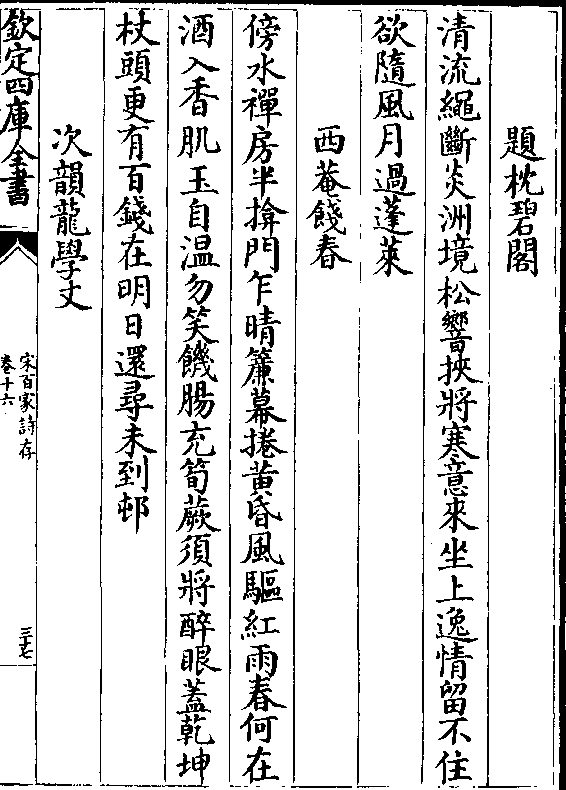 題枕碧閣
清流繩斷炎洲境松響挾將寒意來坐上逸情留不住
欲隨風月過蓬萊
西菴餞春
傍水禪房半揜門乍晴簾幕捲黄昏風驅紅雨春何在
酒入香肌玉自温勿笑饑腸充筍蕨須將醉眼蓋乾坤
杖頭更有百錢在明日還尋未到邨
次韻龍學丈
欽定四庫全書
宋百家詩存
卷十六
三七